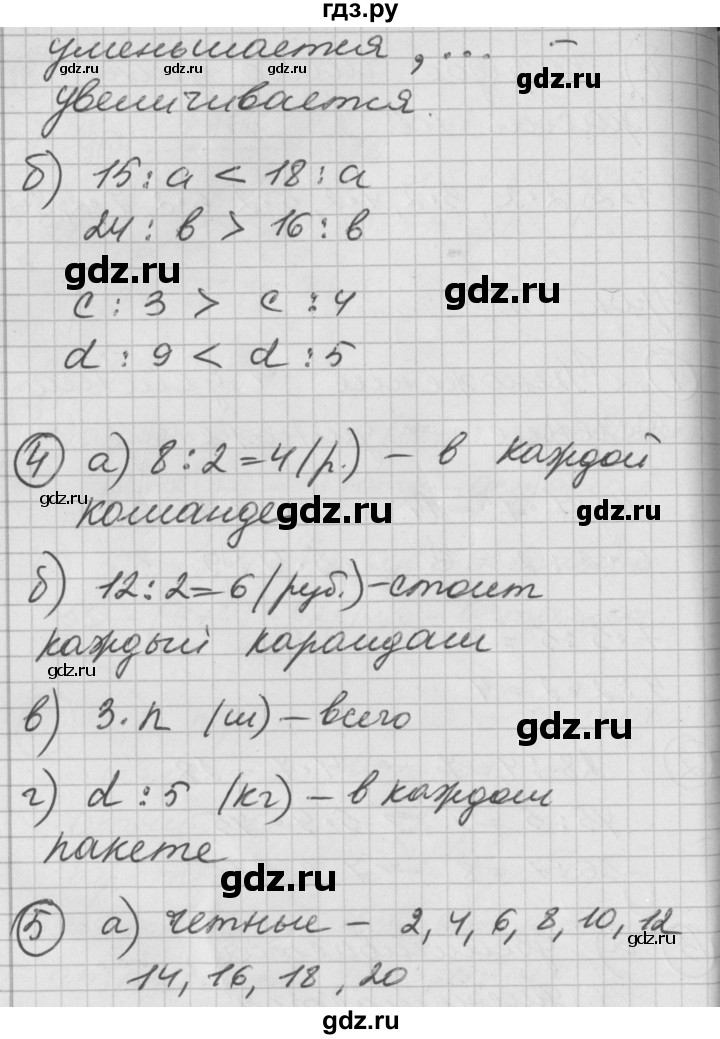 гдз.ру
уменьшается, ... –
gdz.ru gdz.ru gdz.ru
увеличивается.
gdz.ru
б) 15 : а < 18 : а
24 : в > 16 : в
gdz.ru gdz.ru
с : 3 > с : 4
d : 9 < d : 5
④ а) 8 : 2 = 4 (р.) – в каждой
gdz.ru
команде
gdz.ru gdz.ru
б) 12 : 2 = 6 (руб.) – стоит
каждый карандаш
gdz.ru
в) 3 · n (ш) – всего
gdz.ru
г) d : 5 (кг) – в каждом
пакете
gdz.ru
⑤ а) четные – 2, 4, 6, 8, 10, 12
gdz.ru
14, 16, 18, 20
gdz.ru gdz.ru